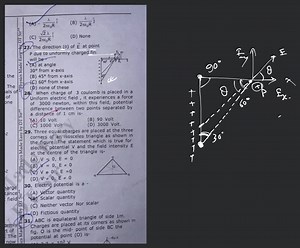 (A) λ / 2πε₀R (B) λ / 2πε₀R
(C) √2 λ / 4πε₀R (D) None
27. The direction (θ) of E at point
P due to uniformly charged
will be
(A) at angle
30° from x-axis
(B) 45° from x-axis
(C) 60° from x-axis
(D) none of these
28. When charge of 3 coulomb is placed in a
Uniform electric field, it experiences a force
of 3000 newton, within this field, potential
difference between two points separated by
a distance of 1 cm is:
(A) 10 Volt (B) 90 Volt
(C) 1000 Volt (D) 3000 Volt.
29. Three equal charges are placed at the three
corners of an isosceles triangle as shown in
the figure. The statement which is true for
electric potential V and the field intensity E
at the centre of the triangle is-
(A) V = 0, E = 0
(B) V = 0, E ≠ 0
(C) V ≠ 0, E = 0
(D) V ≠ 0, E ≠ 0
30. Electric potential is a -
(A) Vector quantity
(B) Scalar quantity
(C) Neither vector Nor scalar
(D) Fictious quantity
31. ABC is equilateral triangle of side 1m.
Charges are placed at its corners as shown in
fig. O is the mid-point of side BC the
potential at point (O) is-
Ey E
90° θ
θ P Ex
60°
30°